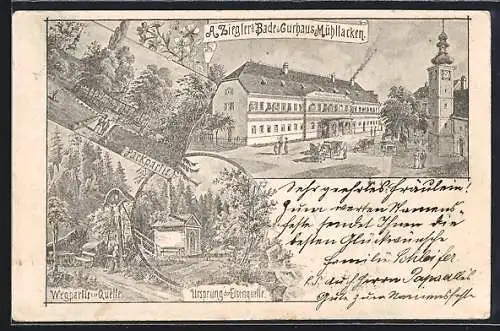 A. Ziegler's Bade & Curhaus, Mühllacken.
Parkpartie
Wegpartie zur Quelle.
Ursprung der Eisenquelle.
Sehr geehrtes Fräulein!
Zum werten Namens-
feste sendet Ihnen die
besten Glückwünsche
Familie Schleifer
P.S. Auch Herrn
Gute zum Namensfeste